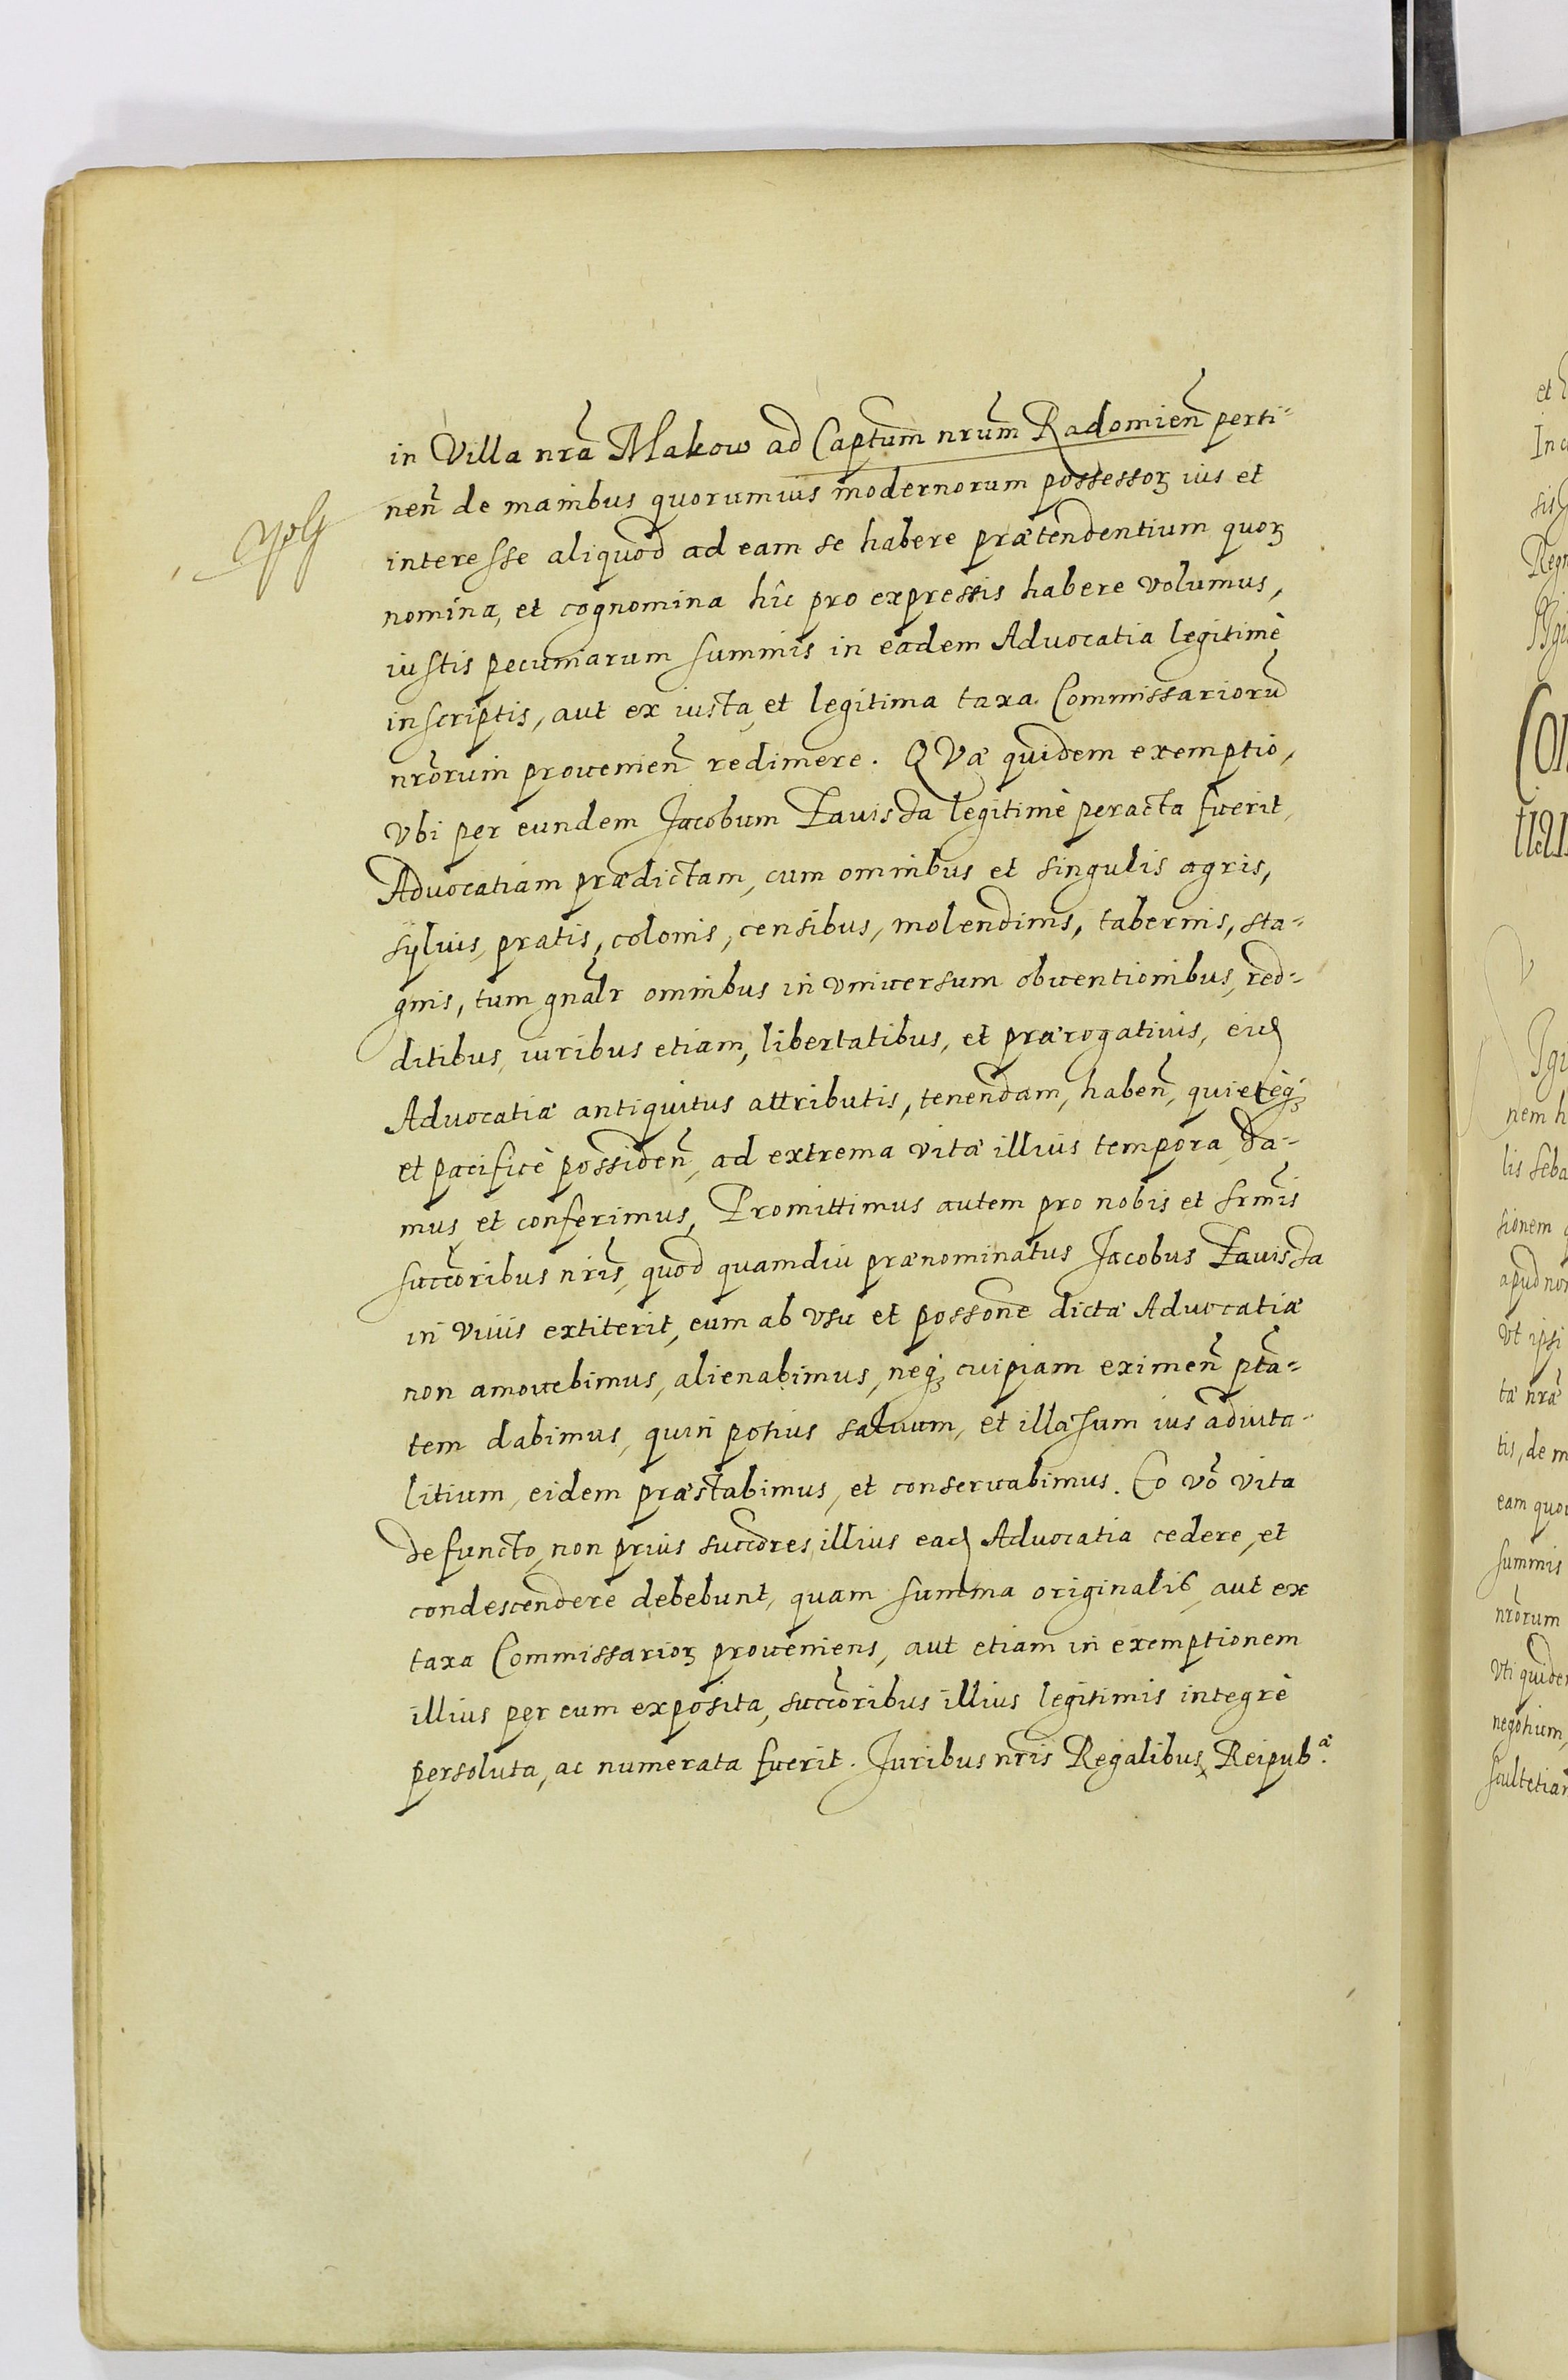 in Villa nrã Makow ad Captum nrum Radomień perti-
neñ de manibus quorumuis modernorum possessoꝝ ius et
interesse aliquod ad eam se habere prætendentium quoꝝ
nomina, et cognomina hîc pro expressis habere volumus,
iustis pecuniarum summis in eadem Advocatia legitimè
inscriptis, aut ex iusta et legitima taxa Commissariorũ
nrõrum prouenieñ redimere. QVæ quidem exemptio,
Vbi per eundem Jacobum Zauisda legitimè peracta fuerit,
Advocatiam prædictam, cum omnibus et singulis agris,
syluis, pratis, colonis, censibus, molendinis, tabernis, sta-
gnis, tum gnãlr omnibus in vniuersum obuentionibus, red-
ditibus, iuribus etiam, libertatibus, et prærogatiuis, eiuꝫ
Advocatiæ antiquitus attributis, tenendam, habeñ, quietèqꝫ
et pacificè possideñ, ad extrema vitæ illius tempora da-
mus et conferimus, Promittimus autem pro nobis et Srm̃is
succõribus nrĩs, quod quamdiu prænominatus Jacobus Zauisda
in viuis extiterit, eum ab vsu et possone dictæ Advocatiæ
non amouebimus, alienabimus, neqꝫ cuipiam eximeñ ptã-
tem dabimus, quin potius saluum, et illæsum ius aduita-
litium, eidem præstabimus, et conseruabimus. Eo võ vita
defuncto, non prius succõres illius eadꝫ Advocatia cedere, et
condescendere debebunt, quam summa originalis, aut ex
taxa Commissarioꝝ proueniens, aut etiam in exemptionem
illius per eum exposita, succõribus illius legitimis integrè
persoluta, ac numerata fuerit. Juribus nrĩs Regalibus, Reipub.ᵃᵉ